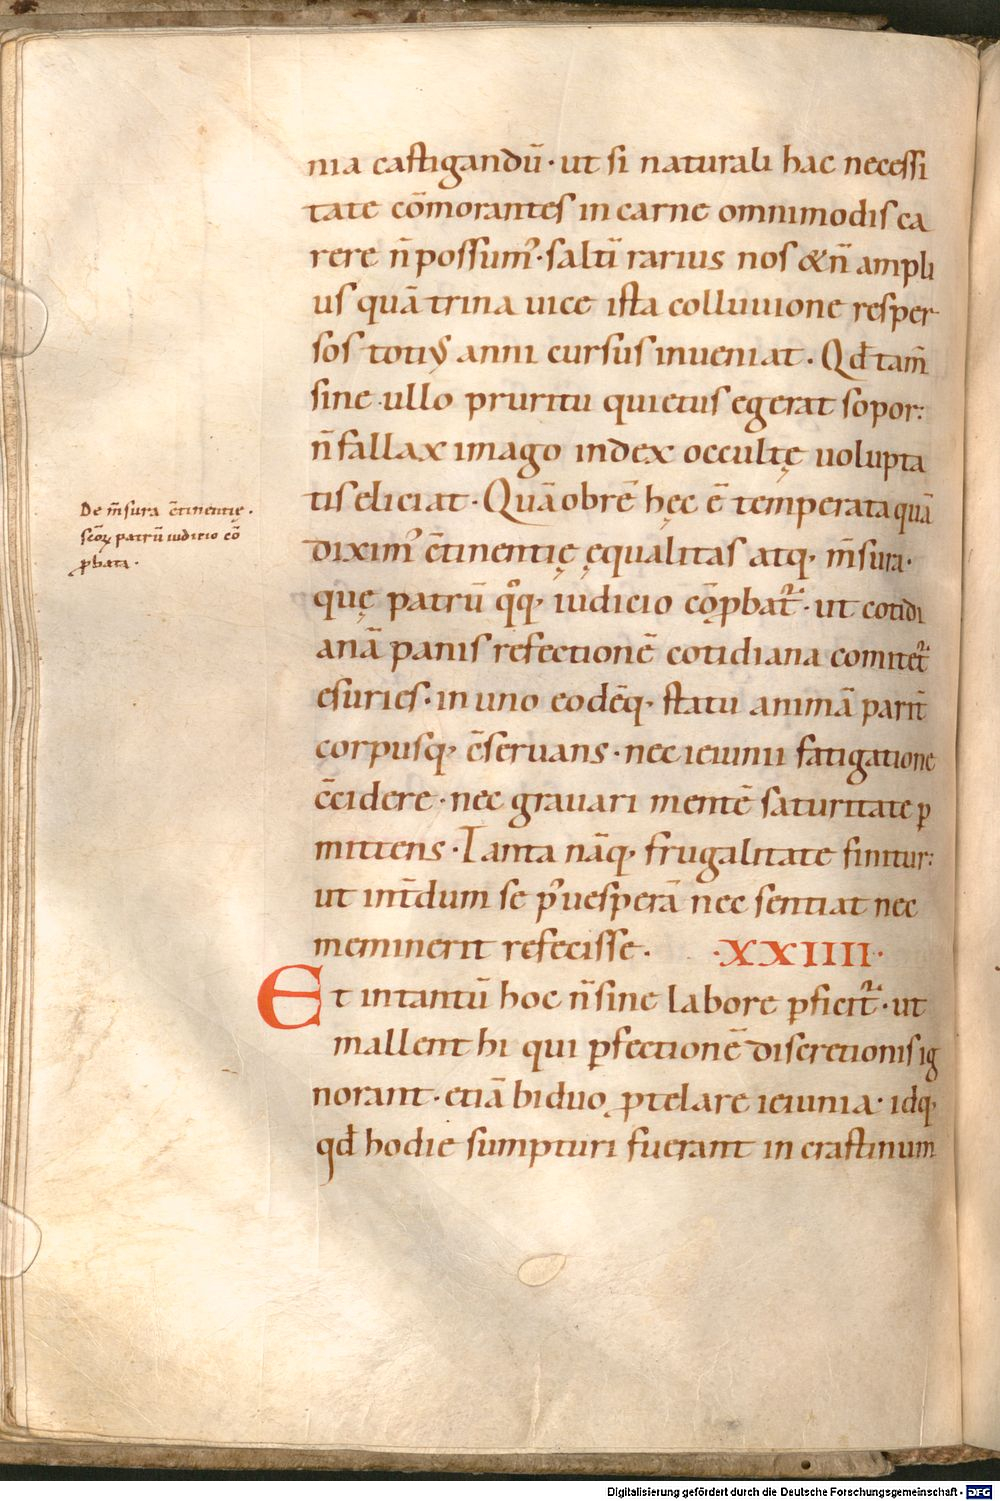 nia castigandū· ut si naturali hac necessi
tate cōmorantes in carne omnimodis ca
rere n̄ possumꝰ· saltī rarius nos & n̄ ampli
us quā trina uice ista colluuione resper
sos totiꝰ anni cursus inueniat· Qđ tam̄
sine ullo pruritu quietus egerat sopor:
n̄ fallax imago index occultę uolupta
tis eliciat· Quāobrē hęc ē temperata quā
diximꝰ c̄tinentię ęqualitas atq; m̄sura·
De m̄sura c̄tinentię·
sc̄oꝝ patrū iudicio cō
ꝓbata·
quę patrū qͦq; iudicio cōꝓbatr̃· ut cotidi
anā panis refectionē cotidiana comitetr̃
esuries· in uno eodēq; statu animā parit̄
corpusq; c̄seruans· nec ieiunii fatigatione
c̄cidere· nec grauari mentē saturitate ꝑ
mittens· Tanta nāq; frugalitate finitur:
ut int̄dum se pꝰ uesperā nec sentiat nec
meminerit refecisse· ·XXIIII·
Et intantū hoc n̄ sine labore ꝑficitr̃· ut
mallent hi qui ꝑfectionē discretionis ig
norant· etiā biduo ꝓtelare ieiunia· idq;
qđ hodie sumpturi fuerant in crastinum
Digitalisierung gefördert durch die Deutsche Forschungsgemeinschaft - DFG